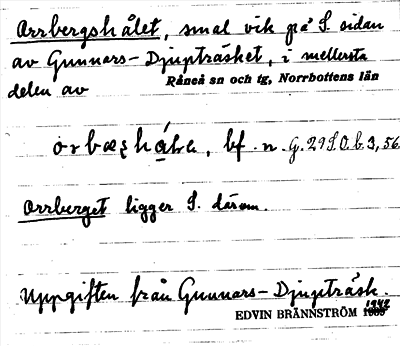 Arrbergshålet, smal vik på S. sidan
av Gunnars-Djupträsket, i mellersta
delen av Råneå sn och tg, Norrbottens län
bf. n. G. 29 S.O. b. 3, 56
Arrberget ligger S. därom.
Uppgiften från Gunnars-Djupträsk.
1942
EDVIN BRÄNNSTRÖM